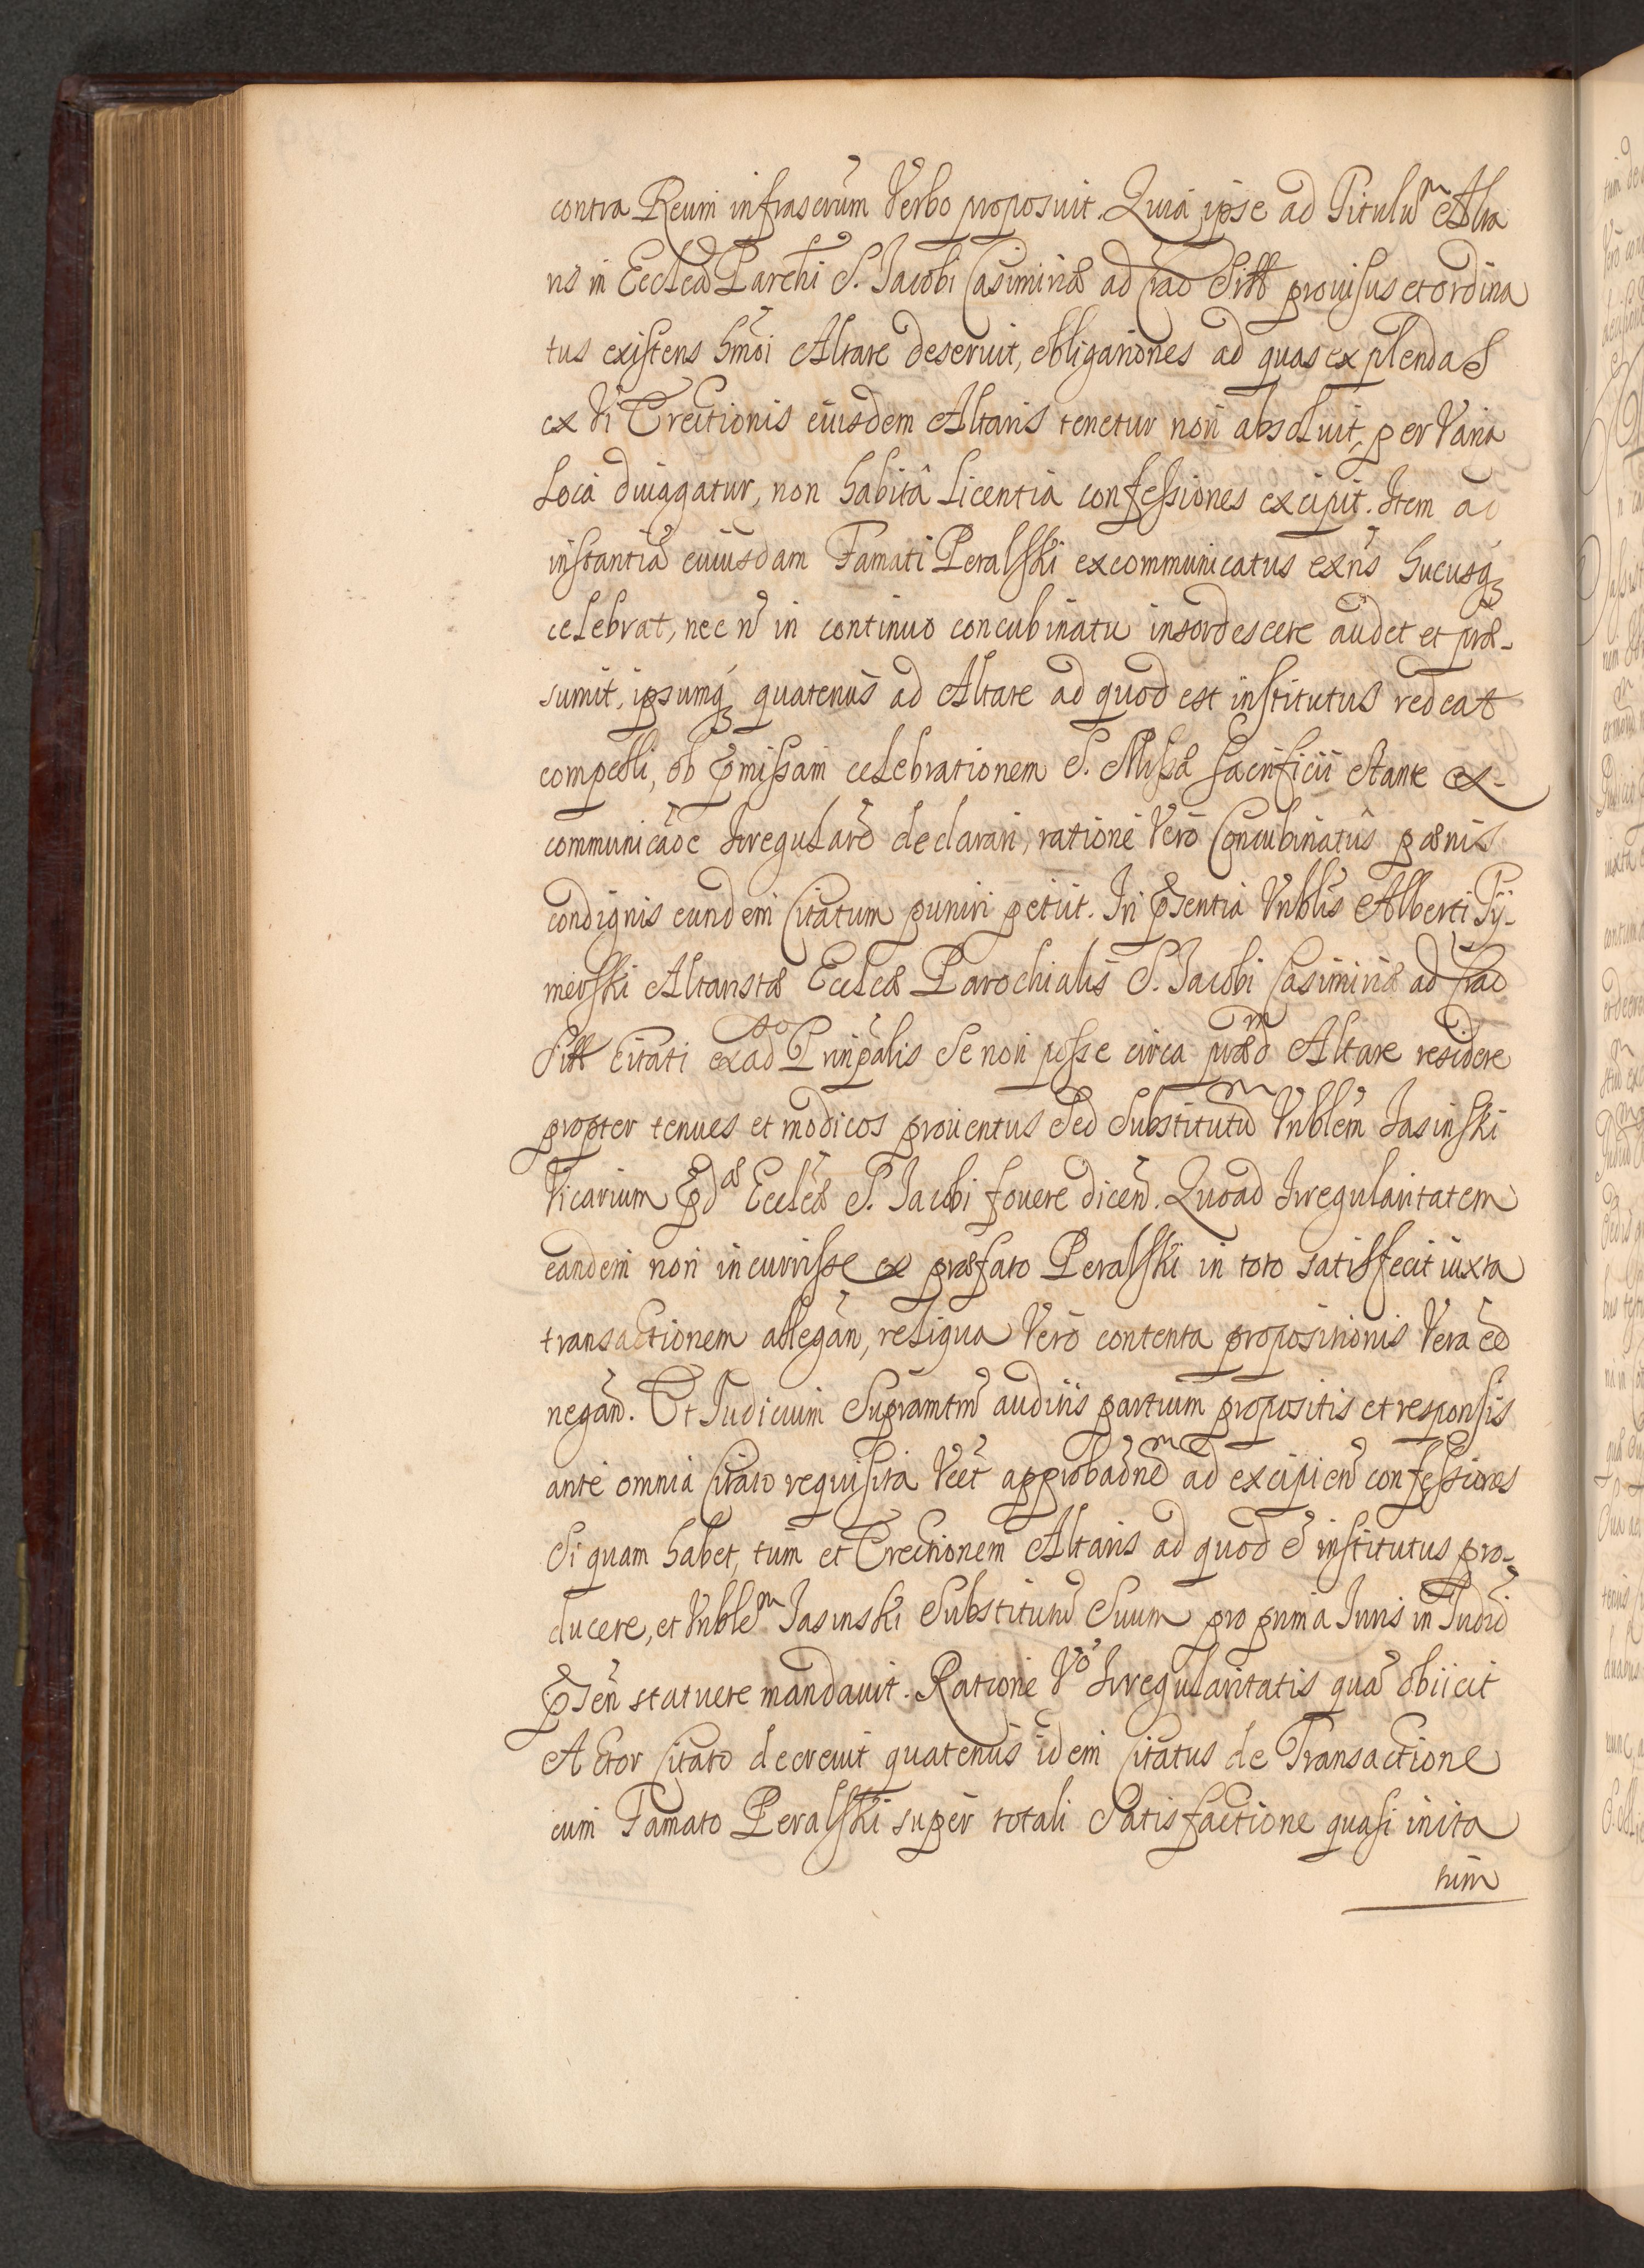 contra Reum infrascrũm Verbo proposuit. Quia ipse ad Titulũ Alta
ris in Ecclea Parchi S. Jacobi Casimiriæ ad Crac̃ sitæ prouisus et ordina
tus existens hm̃oi Altare deseruit, obligationes ad quas explendas
ex Vi Erectionis eiusdem Altaris tenetur non absoluit, per Varia
Loca diuagatur, non habitâ Licentia confessiones excipit. Item ad
instantiã cuiusdam Famati Peralski excommunicatus exñs hucusq̃
celebrat, nec nõ in continuo concubinatu insordescere audet et præ-
sumit, ipsumq̃ quatenus ad Altare ad quod est institutus redeat
compelli, ob p̃missam celebrationem S. Missæ sacrificii stante ex-
communicaõe Irregularẽ declarari, ratione Vero Concubinatûs pœnis
condignis eundem Citatum puniri petiit. In p̃sentia Vnblis Alberti Ty-
merski Altaristæ Eccleæ Parochialis S. Jacobi Casimiriæ ad Crac̃
sitæ Citati ex ad Prinp̃alis se non posse circa præd Altare residere
propter tenues et modicos prouentus sed Substitutũ Vnblẽm Jasinski
Vicarium p̃dæ Eccleæ S. Jacobi fouere dicen̄. Quoad Irregularitatem
eandem non incurrisse ex præfato Peralski in toto satisfecit iuxta
transactionem allegan̄, reliqua Vero contenta propositionis Vera eẽ
negan̄. Et Judicium Supramtm̃ auditis partium propositis et responsis
ante omnia Citato requisita Vcẽt approbaõnẽ ad excipien̄ confessiones
si quam habet, tum et Erectionem Altaris ad quod ẽ institutus pro-
ducere, et Vnblẽm Jasinski Substitutũ Suum pro prima Juris in Judiõ
p̃sen̄ statuere mandauit. Ratione Vo Irregularitatis quã obiicit
Actor Citato decreuit quatenus idem Citatus de Transactione
cum Famato Peralski super totali Satisfactione quasi inita
tum